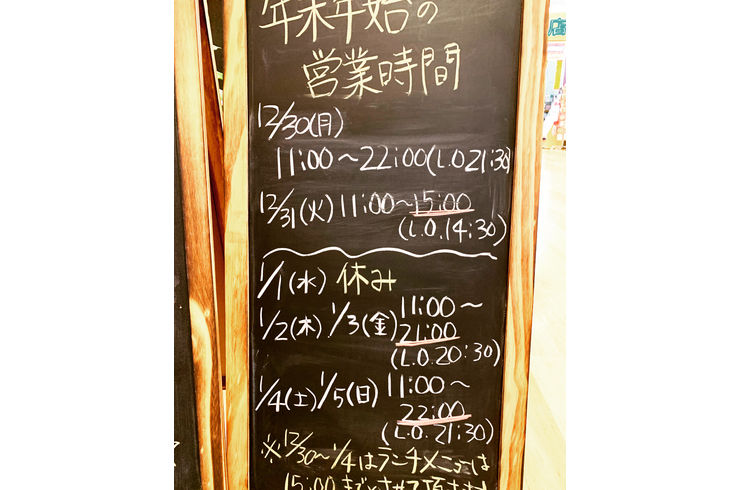 年末年始の
営業時間
12/30(月)
11:00～22:00(L.O.21:30)
12/31(火) 11:00～15:00
(L.O.14:30)
1/1(水) 休み
1/2(木) 1/3(金) 11:00～
21:00
(L.O.20:30)
1/4(土) 1/5(日) 11:00～
22:00
(L.O.21:30)
※12/30～1/4はランチメニューは
15:00までとさせて頂きます